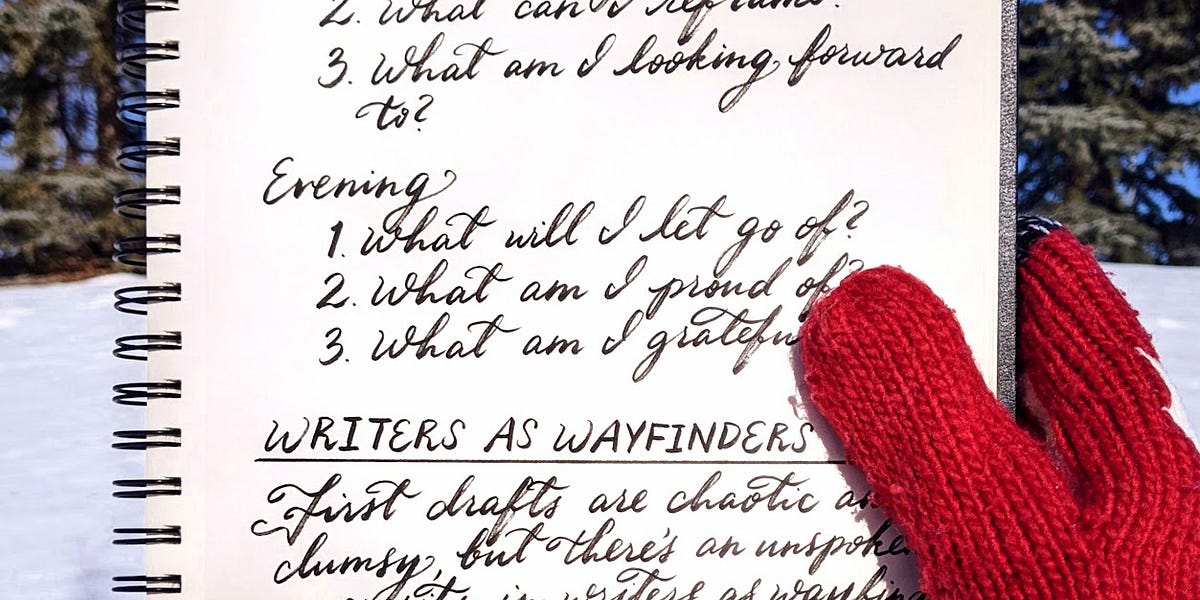 2. What can I reframe?
3. What am I looking forward
to?
Evening
1. What will I let go of?
2. What am I proud of?
3. What am I
WRITERS AS WAYFINDERS
First drafts are chaotic
clumsy, but there's an
in writers as